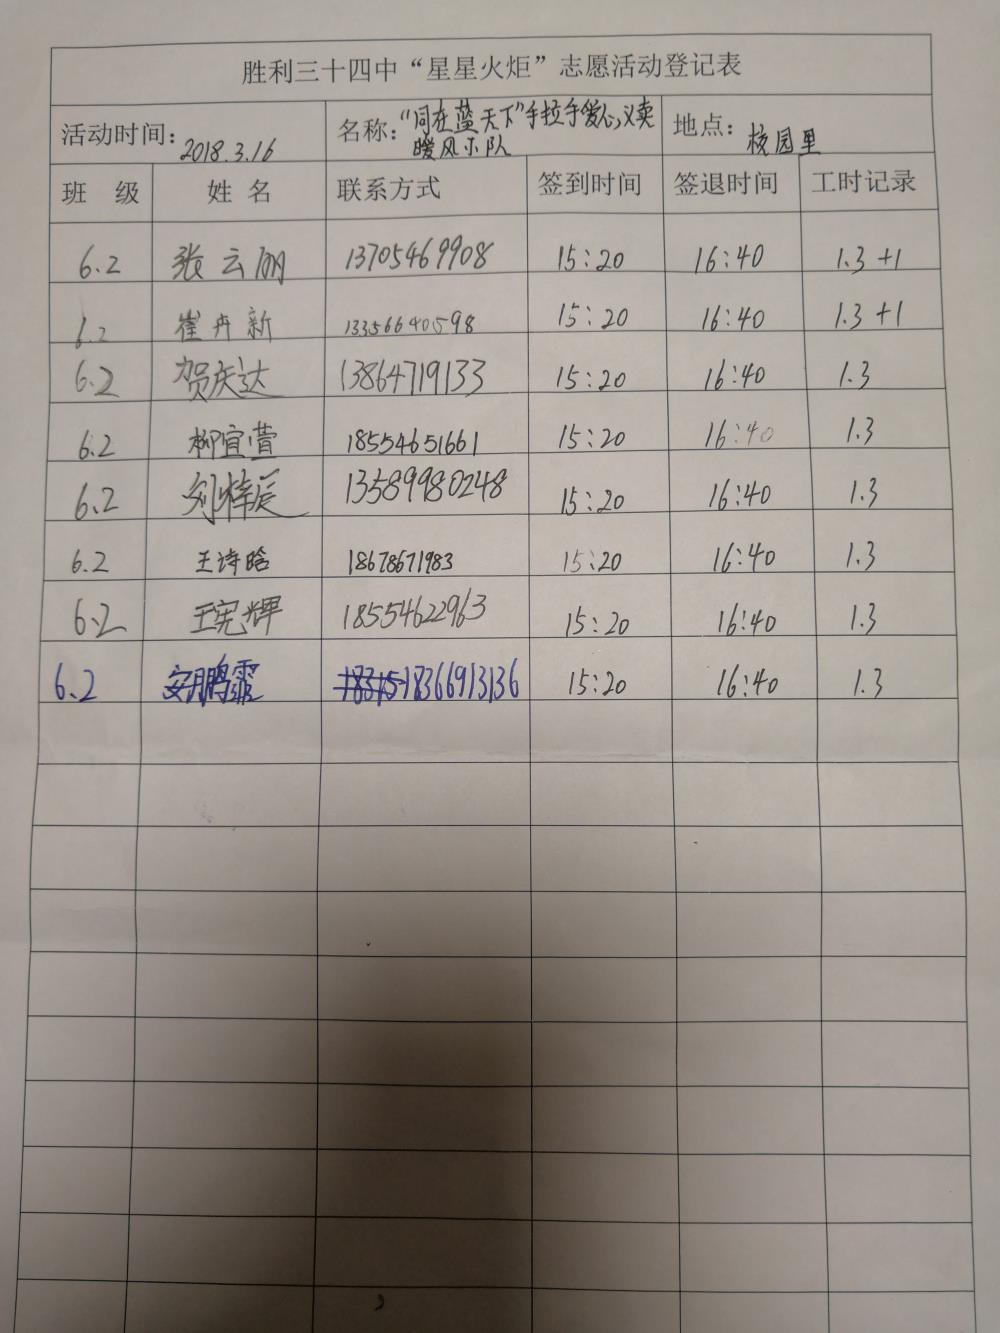 胜利三十四中“星星火炬”志愿活动登记表
活动时间: 2018.3.16 名称: “同在蓝天下”手拉手爱心义卖 暖风小队 地点: 校园里
班 级 姓 名 联系方式 签到时间 签退时间 工时记录
6.2 张云丽 13705469908 15:20 16:40 1.3+1
6.2 崔卉新 13356640598 15:20 16:40 1.3+1
6.2 贺庆达 13864719133 15:20 16:40 1.3
6.2 柳宜萱 18554651661 15:20 16:40 1.3
6.2 刘梓辰 13589980248 15:20 16:40 1.3
6.2 王诗晗 18678671983 15:20 16:40 1.3
6.2 王宪辉 18554622963 15:20 16:40 1.3
6.2 安鹏霏 18366913136 15:20 16:40 1.3